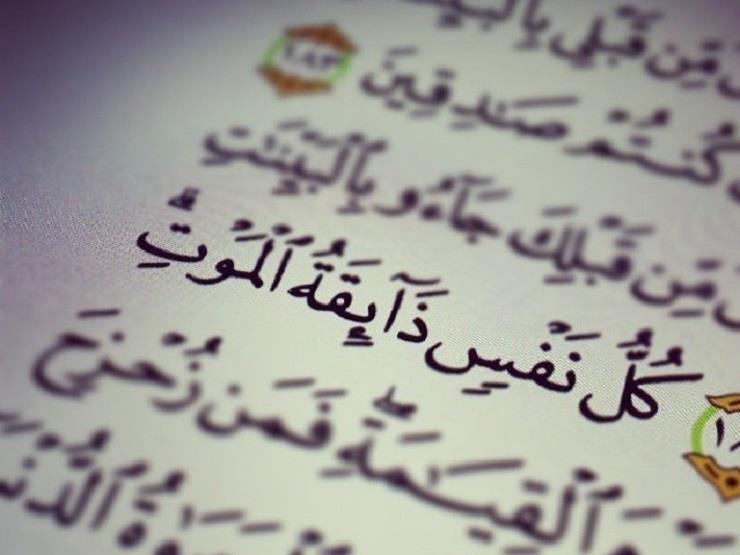 مِّن قَبْلِى
كُنتُمْ صَٰدِقِينَ ١٨٣
مِّن قَبْلِكَ جَآءُو بِٱلْبَيِّنَٰتِ
كُلُّ نَفْسٍ ذَآئِقَةُ ٱلْمَوْتِ ۗ
ٱلْقِيَٰمَةِ ۖ فَمَن زُحْزِحَ